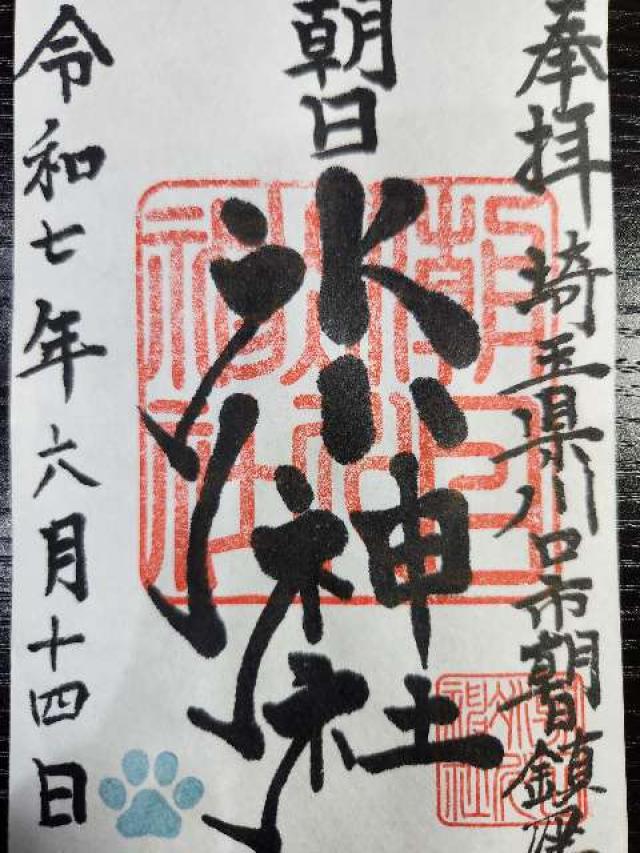 奉拝 埼玉県川口市朝日鎮座
朝日
氷川神社
令和七年六月十四日